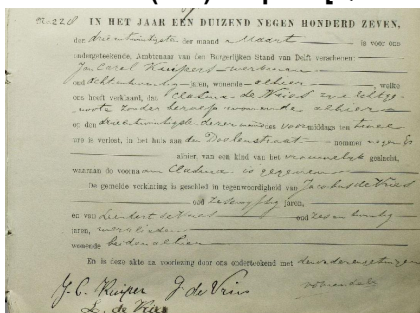 No 228
IN HET JAAR EEN DUIZEND NEGEN HONDERD ZEVEN,
den drieëntwintigsten der maand Maart is voor ons
ondergeteekende, Ambtenaar van den Burgerlijken Stand van Delft verschenen:
Jan Carel Kuipers
oud achtentwintig jaren, wonende alhier welke
ons heeft verklaard, dat Cladina de Vries zijne echtge-
noote zonder beroep wonende alhier
op den drieëntwintigste dezer maand des voormiddags ten twee
ure is verlost, in het huis aan de Doelenstraat nommer negen
alhier, van een kind van het vrouwelijk geslacht,
waaraan de voornaam Cladina is gegeven
De gemelde verklaring is geschied in tegenwoordigheid van Jacobus de Vries
oud zesenvijftig jaren,
en van Leendert de Vries oud zes en twintig
jaren, werklieden
wonende beiden alhier
En is deze akte na voorlezing door ons onderteekend met
J. C. Kuiper J. de Vries
L. de Vries